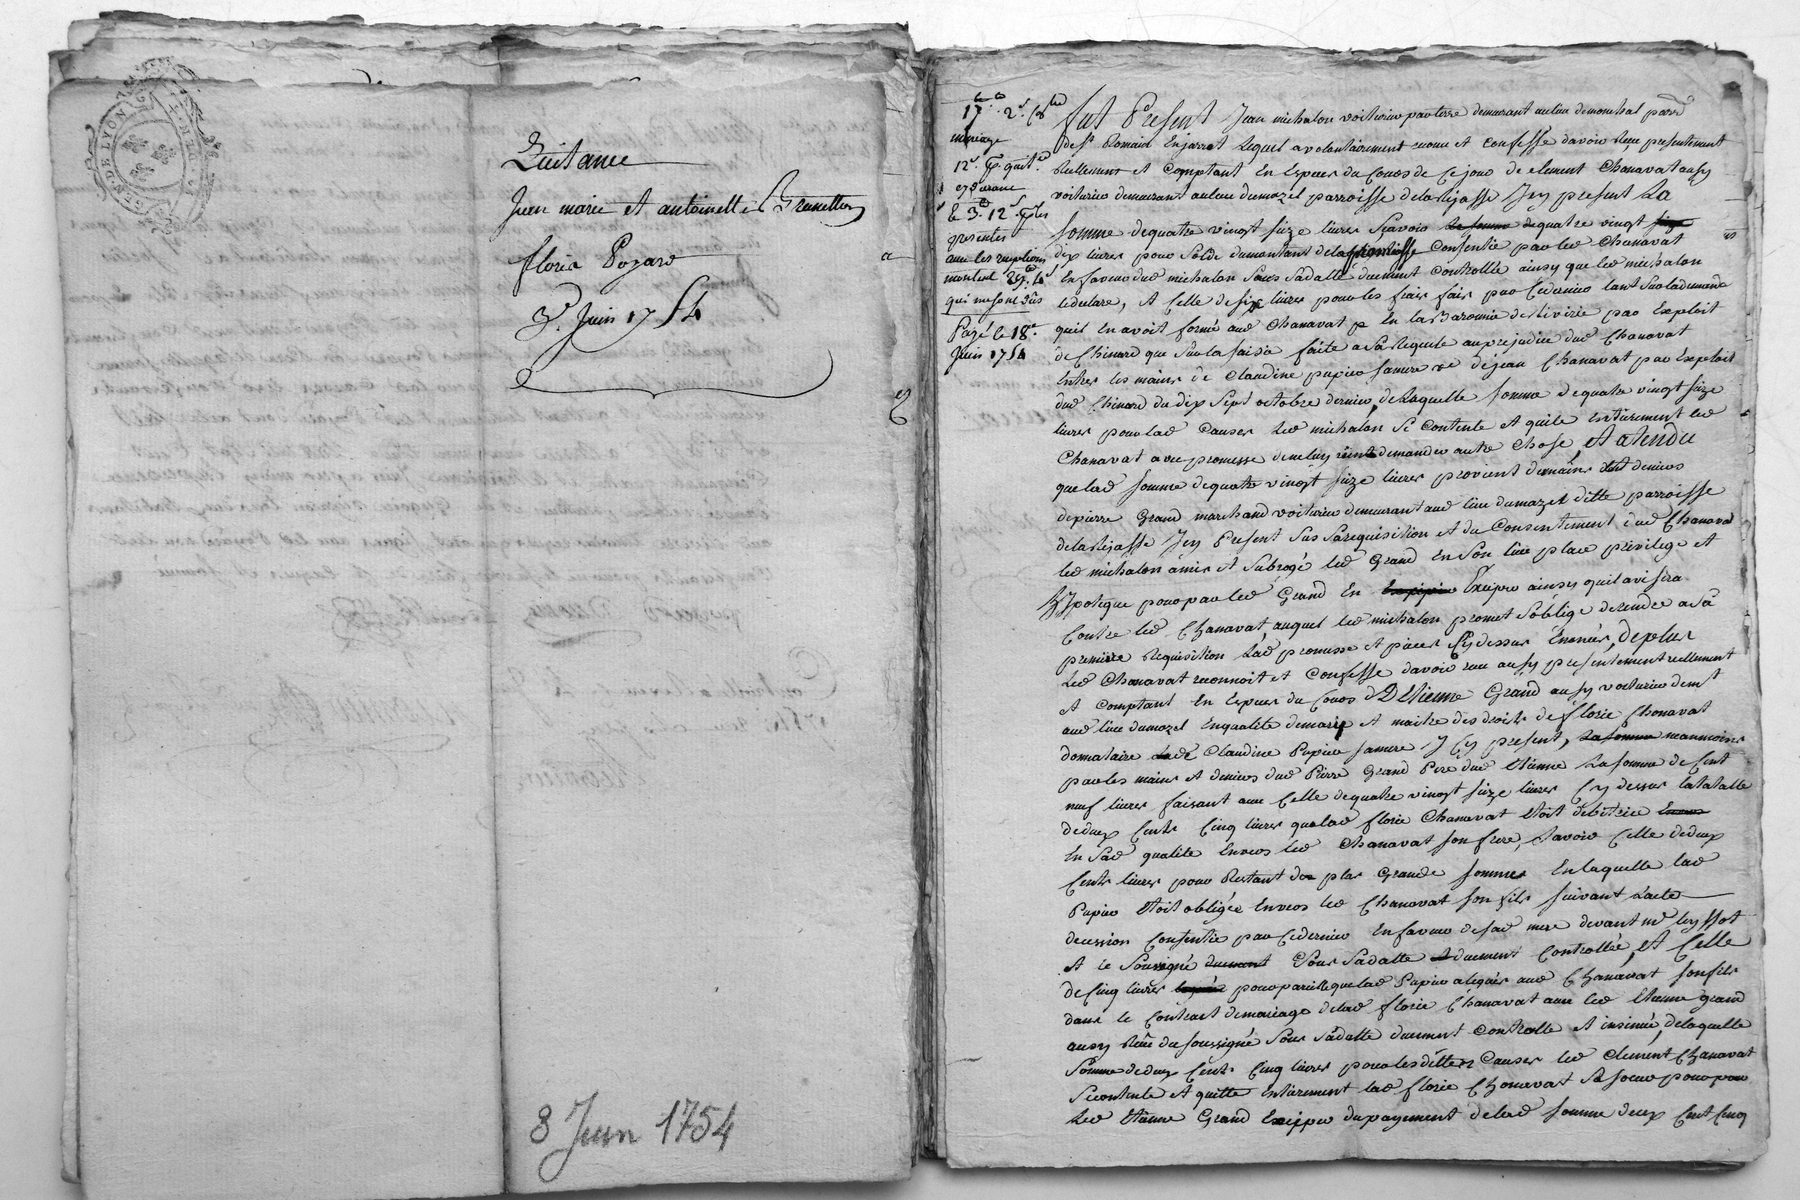 GEN. DE LYON
Quitance
Jean marie et antoinette Brunetton
florie Poyard
3e. Juin 1754
8 Juin 1754
mariage
12s.
et durane
le 3e. 12s.
presentes
avec les receptions
montent 29
qui me sont dûs
Payé le 18e.
Juin 1754
fut Present Jean michalon voiturier par terre demeurant au lieu de monchal parr
de St. Romain En jarret Lequel a volontairement reconu et Confesse davoir Reçu presentement
Reellement et Comptant En Especes du Cours de Ce jour de Clement Chanavat aussy
voiturier demeurant au lieu du mozel parroisse de la Rejasse Icy present La
somme de quatre vingt seize livres Scavoir la somme de quatre vingt
dix livres pour Solde du montant de la promesse Consentie par led Chanavat
En faveur dud michalon Sous Sa datte duement Controllée ainsy que led michalon
le declare, et Celle de six livres pour les frais fais par Ce dernier tant Sur la demande
quil En avoit formé aud Chanavat En la Baronnie de Rivirie par Exploit
de Chinard que Sur la saisie faite a Sa Requete au prejudice dud Chanavat
Entres les mains de Claudine pupier sa mere ve de jean Chanavat par Exploit
dud Chinard du dix Sept octobre dernier, de Laquelle somme de quatre vingt seize
livres pour lad Causes Led michalon Se Contente et quite Entierement led
Chanavat avec promesse de ne luy rient demander autre Chose, et atendu
que lad somme de quatre vingt seize livres provient des mains et deniers
de pierre Grand marchand voiturier demeurant aud lieu du mazel ditte parroisse
de la Rejasse Icy Present Sur Sa requisition et du Consentement dud Chanavat
led michalon a mis et Subrogé led Grand En Son lieu place privilege et
hypoteque pour par led Grand En Exciper ainsy quil avisera
Contre led Chanavat, auquel led michalon promet S'oblige de rendre a Sa
premiere Requisition Lad promesse et pieces Cy dessus Enoncés, de plus
Led Chanavat reconnoit et Confesse davoir reçu aussy presentement reellement
et Comptant En Especes du Cours D'Etienne Grand aussy voiturier demt
aud lieu du mozel En qualité de mary et maitre des droits de florie Chanavat
donataire de Claudine Pupier sa mere Icy present, La somme neanmoins
par les mains et deniers dud Pierre Grand Pere dud Etienne La somme de Cent
neuf livres faisant avec Celle de quatre vingt seize livres Cy dessus la totalle
de deux Cents Cinq livres que lad florie Chanavat Etoit debitrice Envers
En Sad qualité Envers led Chanavat Son frere, Scavoir Celle de deux
Cents livres pour Restant de plus Grande sommes En laquelle lad
Pupier Etoit obligée Envers led Chanavat Son fils Suivant L'acte
de cession Consentie par Ce dernier En faveur de sad mere devant me leyssot
et le Soussigné duement Sous Sa datte duement Controllée, et Celle
de Cinq livres pour pareille que lad Pupier a legués aud Chanavat Son fils
dans le Contract de mariage de lad florie Chanavat avec led Etienne Grand
aussy Reçu du soussigné Sous Sa datte duement Controllé et insinué, de laquelle
Somme de deux Cents Cinq livres pour les dittes Causes led Clement Chanavat
Se contente et quitte Entierement lad florie Chanavat Sa soeur pour par
Led Etienne Grand Exciper du payement de lad somme deux Cent Cinq